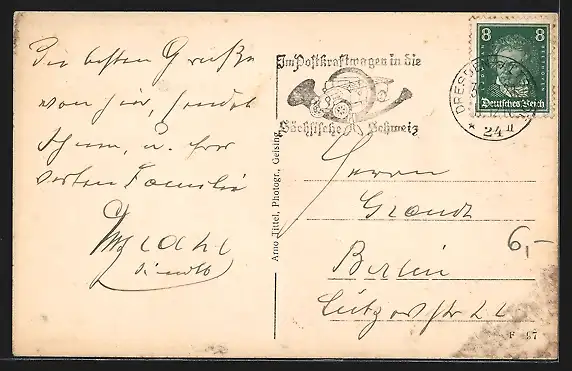 Die besten Grüße
von hier, sendet
Ihnen, u. Ihrer
werten Familie
Im Postkraftwagen in die
Sächsische Schweiz
8 8
Deutsches Reich
DRESDEN
* 24 II
Arno Tittel, Photogr., Geising.
Herrn
Grandt
Berlin
Lützowstr 22
6,-
F 47